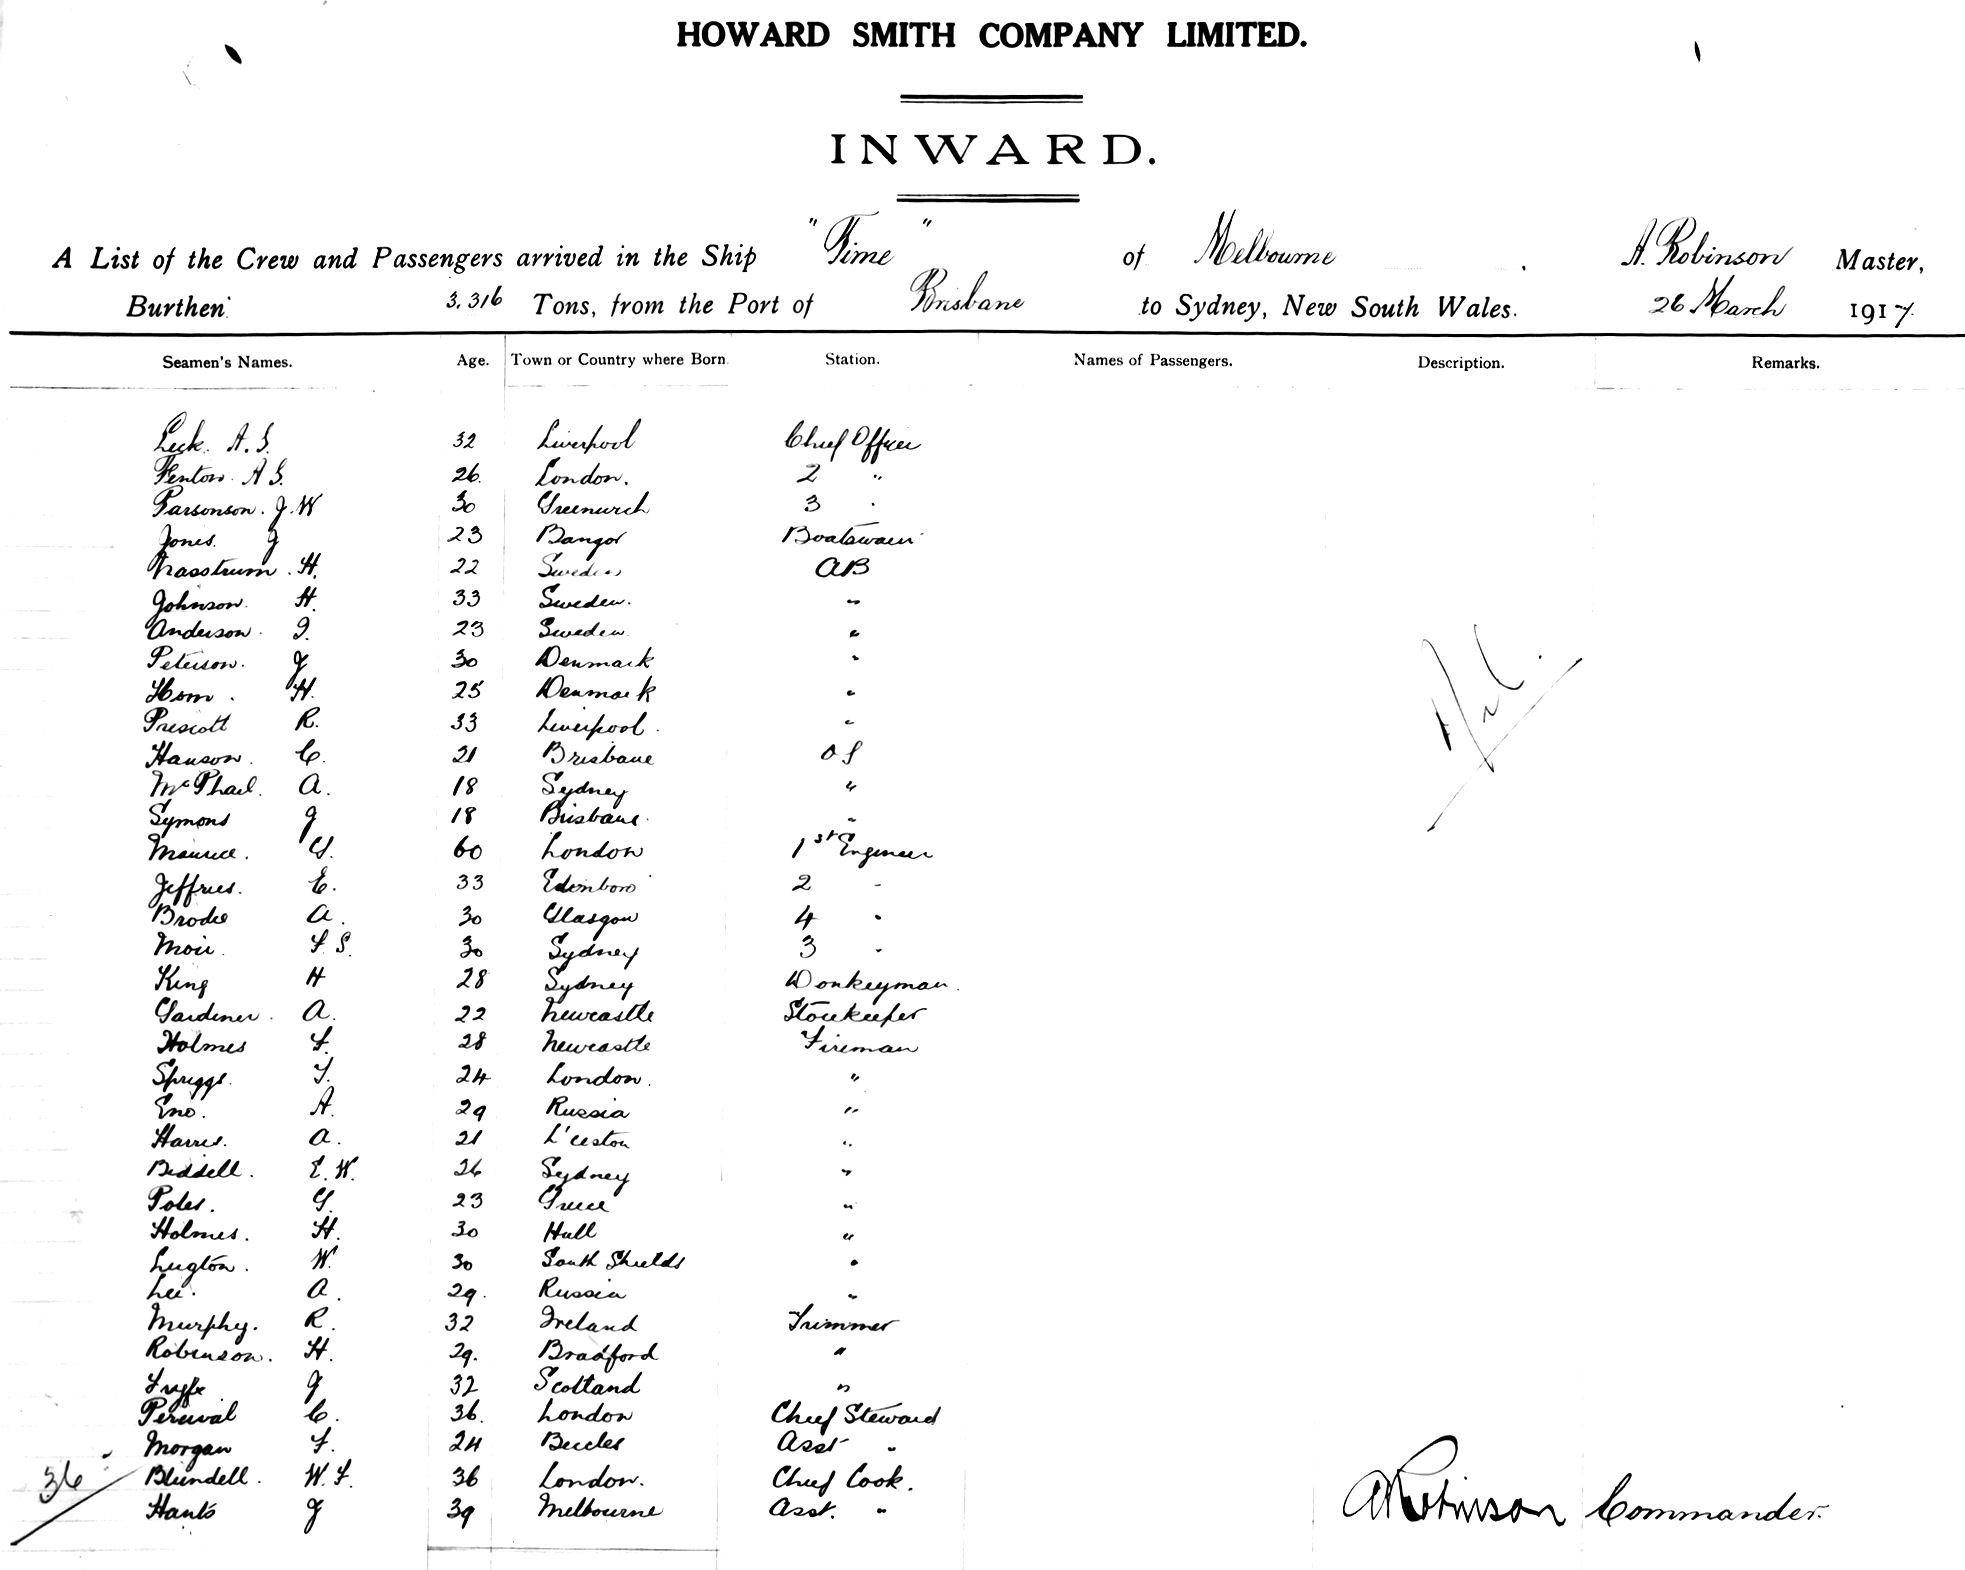 HOWARD SMITH COMPANY LIMITED.
INWARD.
A List of the Crew and Passengers arrived in the Ship "Time" of Melbourne A. Robinson Master,
Burthen 3,316 Tons, from the Port of Brisbane to Sydney, New South Wales. 26 March 1917.
Seamen's Names. Age. Town or Country where Born Station. Names of Passengers. Description. Remarks.
Leck. A. S. 32 Liverpool Chief Officer
Fenton. A S. 26. London. 2 "
Parsonson. J. W 30 Greenwich 3 "
Jones. J 23 Bangor Boatswain
H. 22 Sweden AB
Johnson. H. 33 Sweden. "
Anderson. I. 23 Sweden. "
Peterson. J 30 Denmark "
Hom. H. 25 Denmark "
Prescott R. 33 Liverpool. "
Hanson. C. 21 Brisbane OS
McPhail. A. 18 Sydney "
Symons J 18 Brisbane. "
Maurice. G. 60 London 1st Engineer
Jeffries. E. 33 Edinboro 2 "
Brodie A. 30 Glasgow 4 "
Moir F. S. 30 Sydney 3 "
King H 28 Sydney Donkeyman.
Gardiner. A. 22 Newcastle Storekeeper
Holmes F. 28 Newcastle Fireman
Spriggs. T. 24 London. "
Eno. A. 29 Russia "
Harris. A. 21 L'ceston "
Biddell. E. W. 26 Sydney "
Poles. G. 23 Greece "
Holmes. H. 30 Hull "
Lugton. W. 30 South Shields "
Lee. A. 29. Russia "
Murphy. R. 32 Ireland Trimmer
Robinson. H. 29. Bradford "
Fyffe J 32 Scotland "
Percival C. 36. London Chief Steward
Morgan F. 24 Beccles Asst "
36 Blundell. W. F. 36 London. Chief Cook.
Hants J 39 Melbourne Asst. "
Nil.
A Robinson Commander.